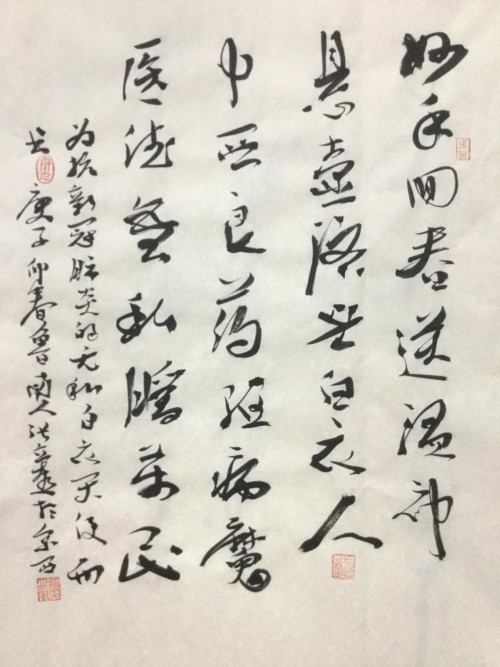 妙手回春送温神
悬壶济世白衣人
中西良药驱病魔
医德無私暖萬民
为抗新冠肺炎的无私白衣天使而
书 庚子仰春鲁南人於京西